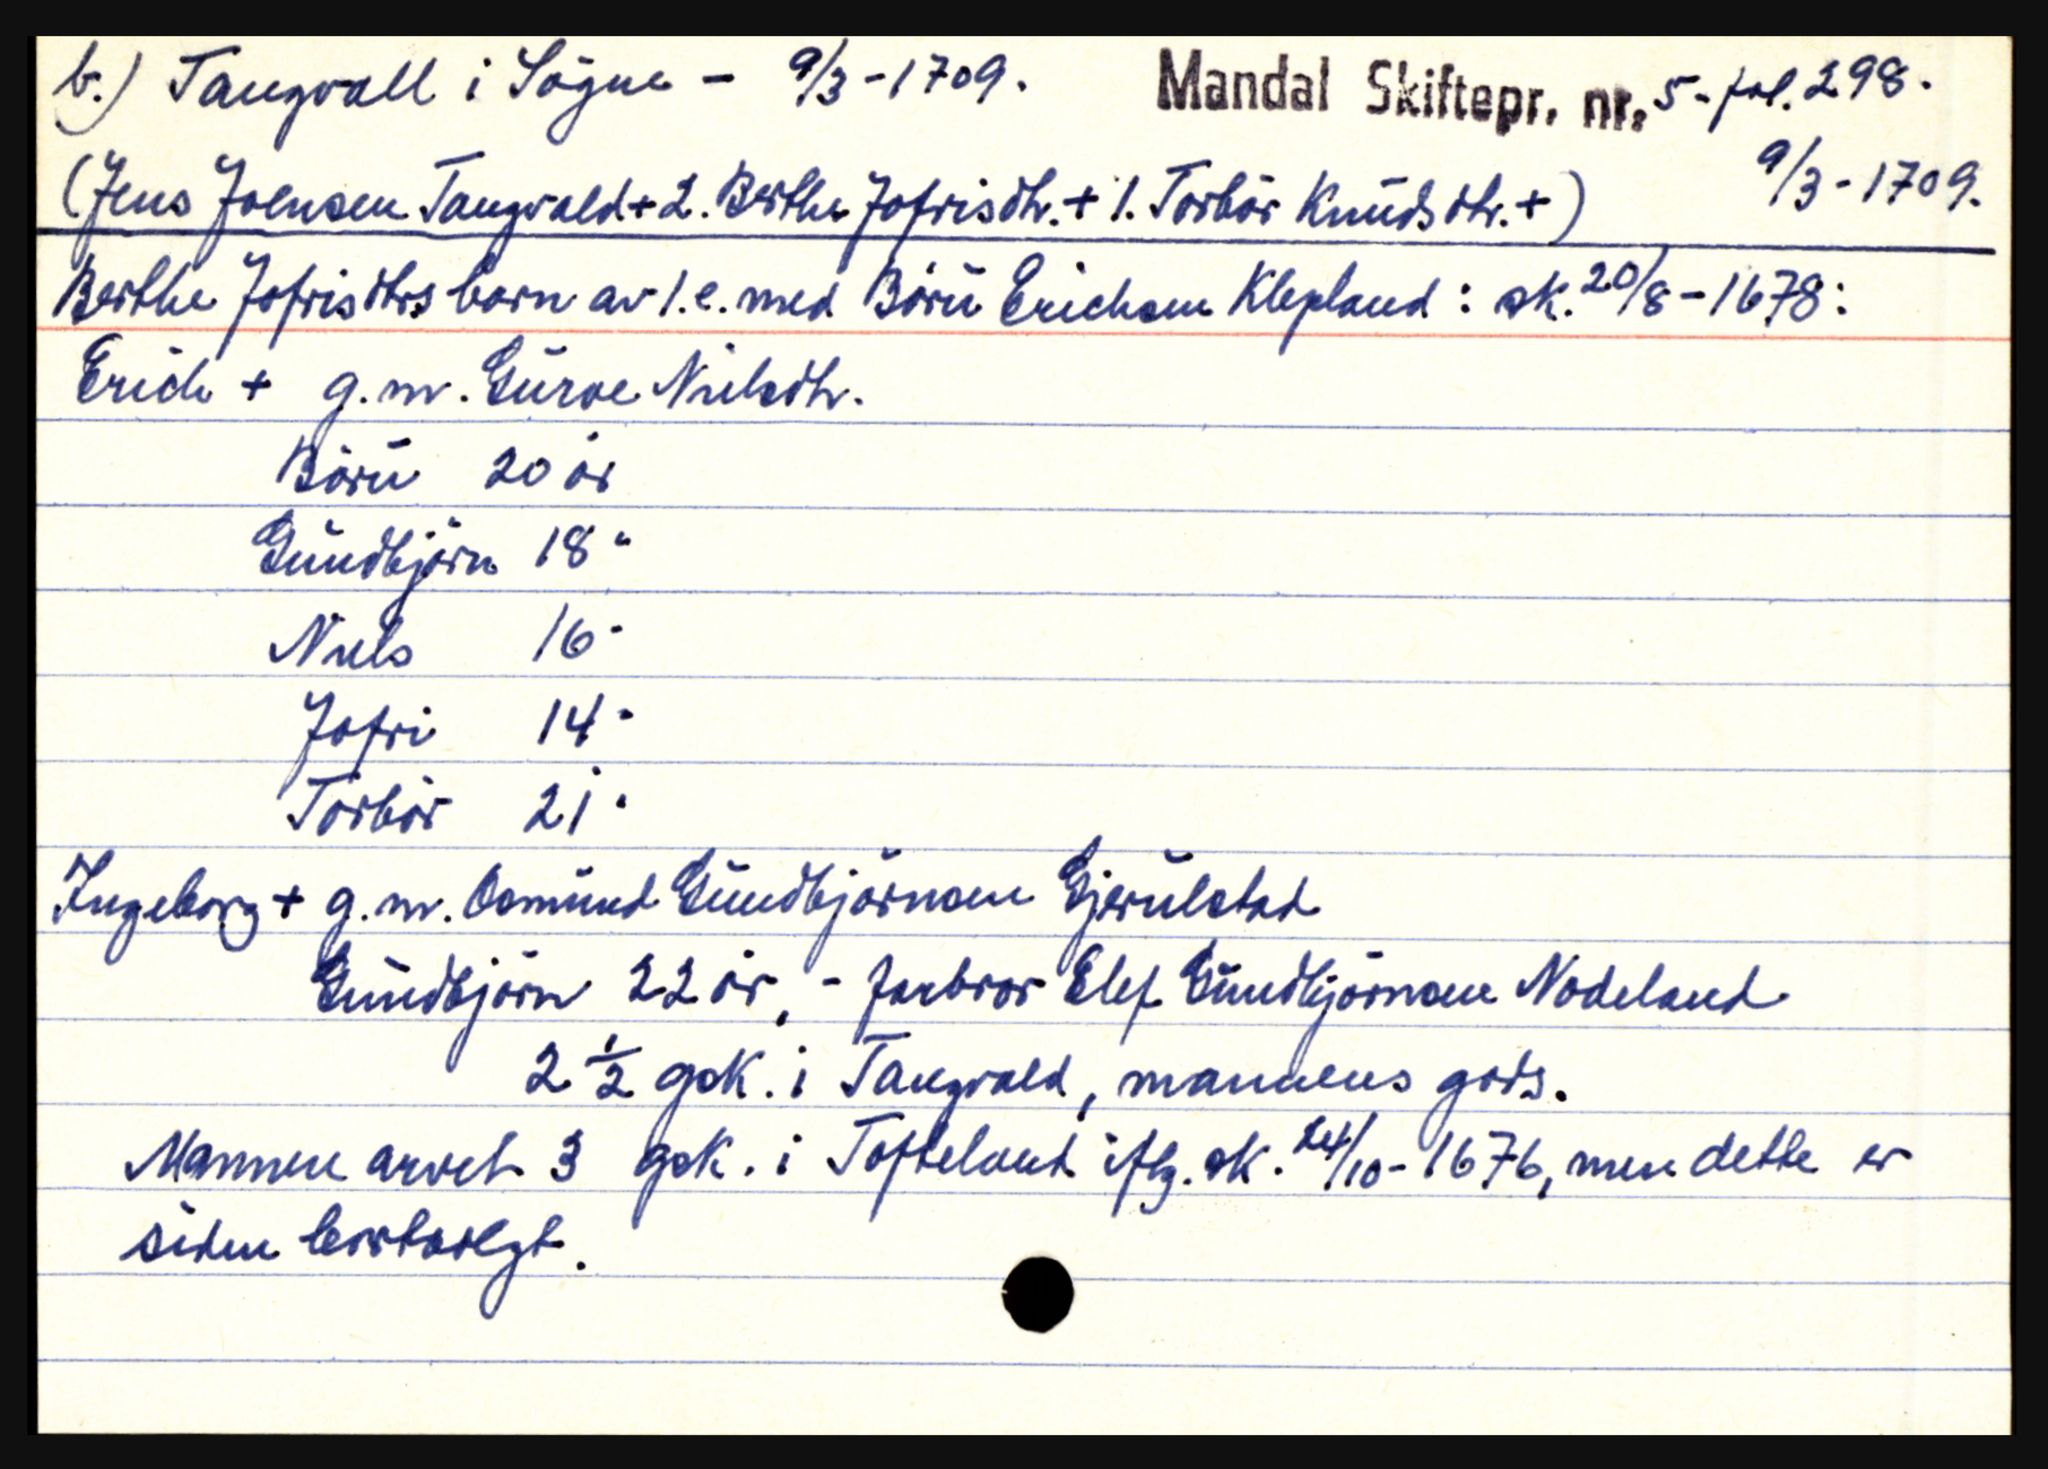 b.) Tangvall i Sögne - 9/3-1709. Mandal Skiftepr. nr. 5 - fol. 298.
9/3-1709.
(Jens Joensen Tangvald + 2. Berthe Jofrisdtr. + 1. Torbör Knudsdtr. +)
Berthe Jofrisdtrs barn av 1. e. med Börü Erichsen Klepland: sk. 20/8-1678:
Erich + g.m. Gürve Nielsdtr.
Börü 20 år
Gündbjörn 18 "
Niels 16 "
Jofri 14 "
Torbör 21 "
Ingeborg + g.m. Osmünd Gündbjörnsen Gjerülstad
Gündbjörn 22 år, - farbror Elef Gündbjörnsen Nodeland
2 1/2 gsk. i Tangvald, mannens gods.
Mannen arvet 3 gsk. i Tofteland iflg. sk. 24/10-1676, men dette er
siden bortsolgt.